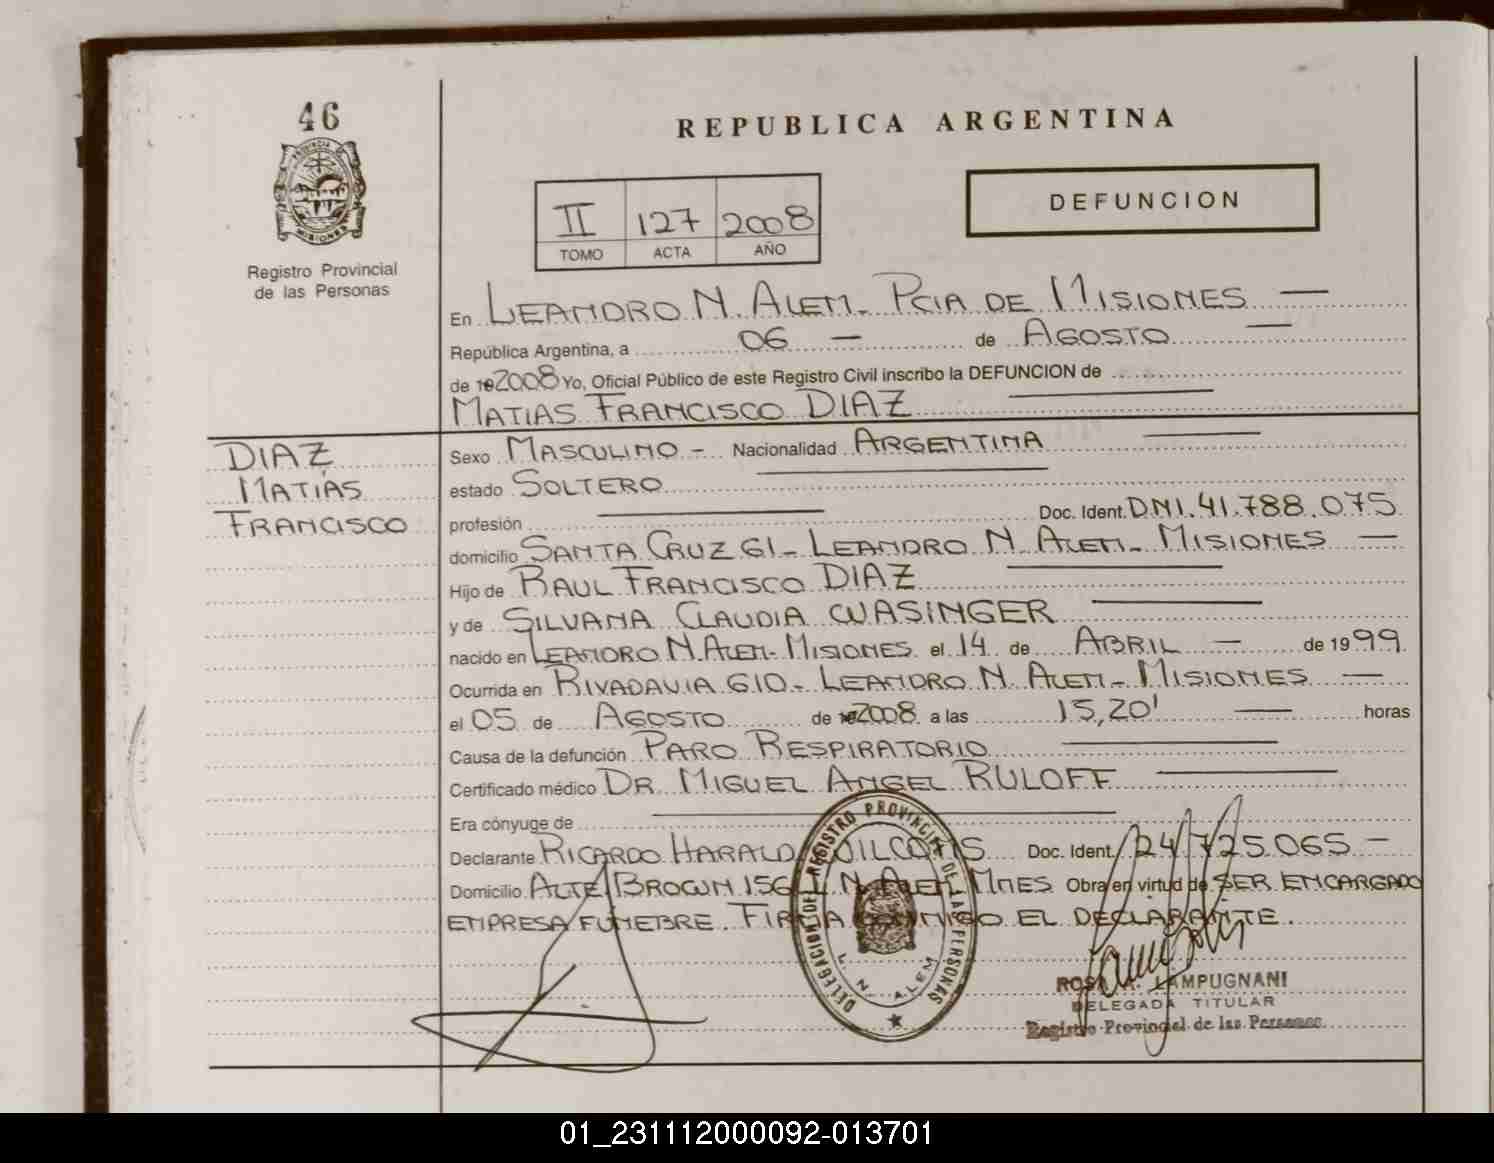 46
REPUBLICA ARGENTINA
PROVINCIA DE MISIONES
Registro Provincial
de las Personas
II 127 2008
TOMO ACTA AÑO
DEFUNCION
En LEANDRO N. ALEM - PCIA DE MISIONES —
República Argentina, a 06 — de AGOSTO —
de 2008 Yo, Oficial Público de este Registro Civil inscribo la DEFUNCION de
MATIAS FRANCISCO DIAZ
DIAZ
MATÍAS
FRANCISCO
Sexo MASCULINO - Nacionalidad ARGENTINA
estado SOLTERO
profesión — Doc. Ident. DNI. 41.788.075
domicilio SANTA CRUZ 61 - LEANDRO N. ALEM - MISIONES —
Hijo de RAUL FRANCISCO DIAZ
y de SILVANA CLAUDIA WASINGER
nacido en LEANDRO N. ALEM - MISIONES el 14 de ABRIL — de 1999
Ocurrida en RIVADAVIA 610 - LEANDRO N. ALEM - MISIONES —
el 05 de AGOSTO de 2008 a las 15,20' — horas
Causa de la defunción PARO RESPIRATORIO
Certificado médico DR. MIGUEL ANGEL RULOFF
Era cónyuge de
Declarante RICARDO HARALD Doc. Ident. 24.725.065 -
Domicilio ALTE BROWN 156 L. N. ALEM MNES Obra en virtud de SER ENCARGADO
EMPRESA FUNEBRE. FIRMA CONMIGO EL DECLARANTE.
DELEGACION DE REGISTRO PROVINCIAL DE LAS PERSONAS
L. N. ALEM
ROSA A. LAMPUGNANI
DELEGADA TITULAR
Registro Provincial de las Personas
01_231112000092-013701